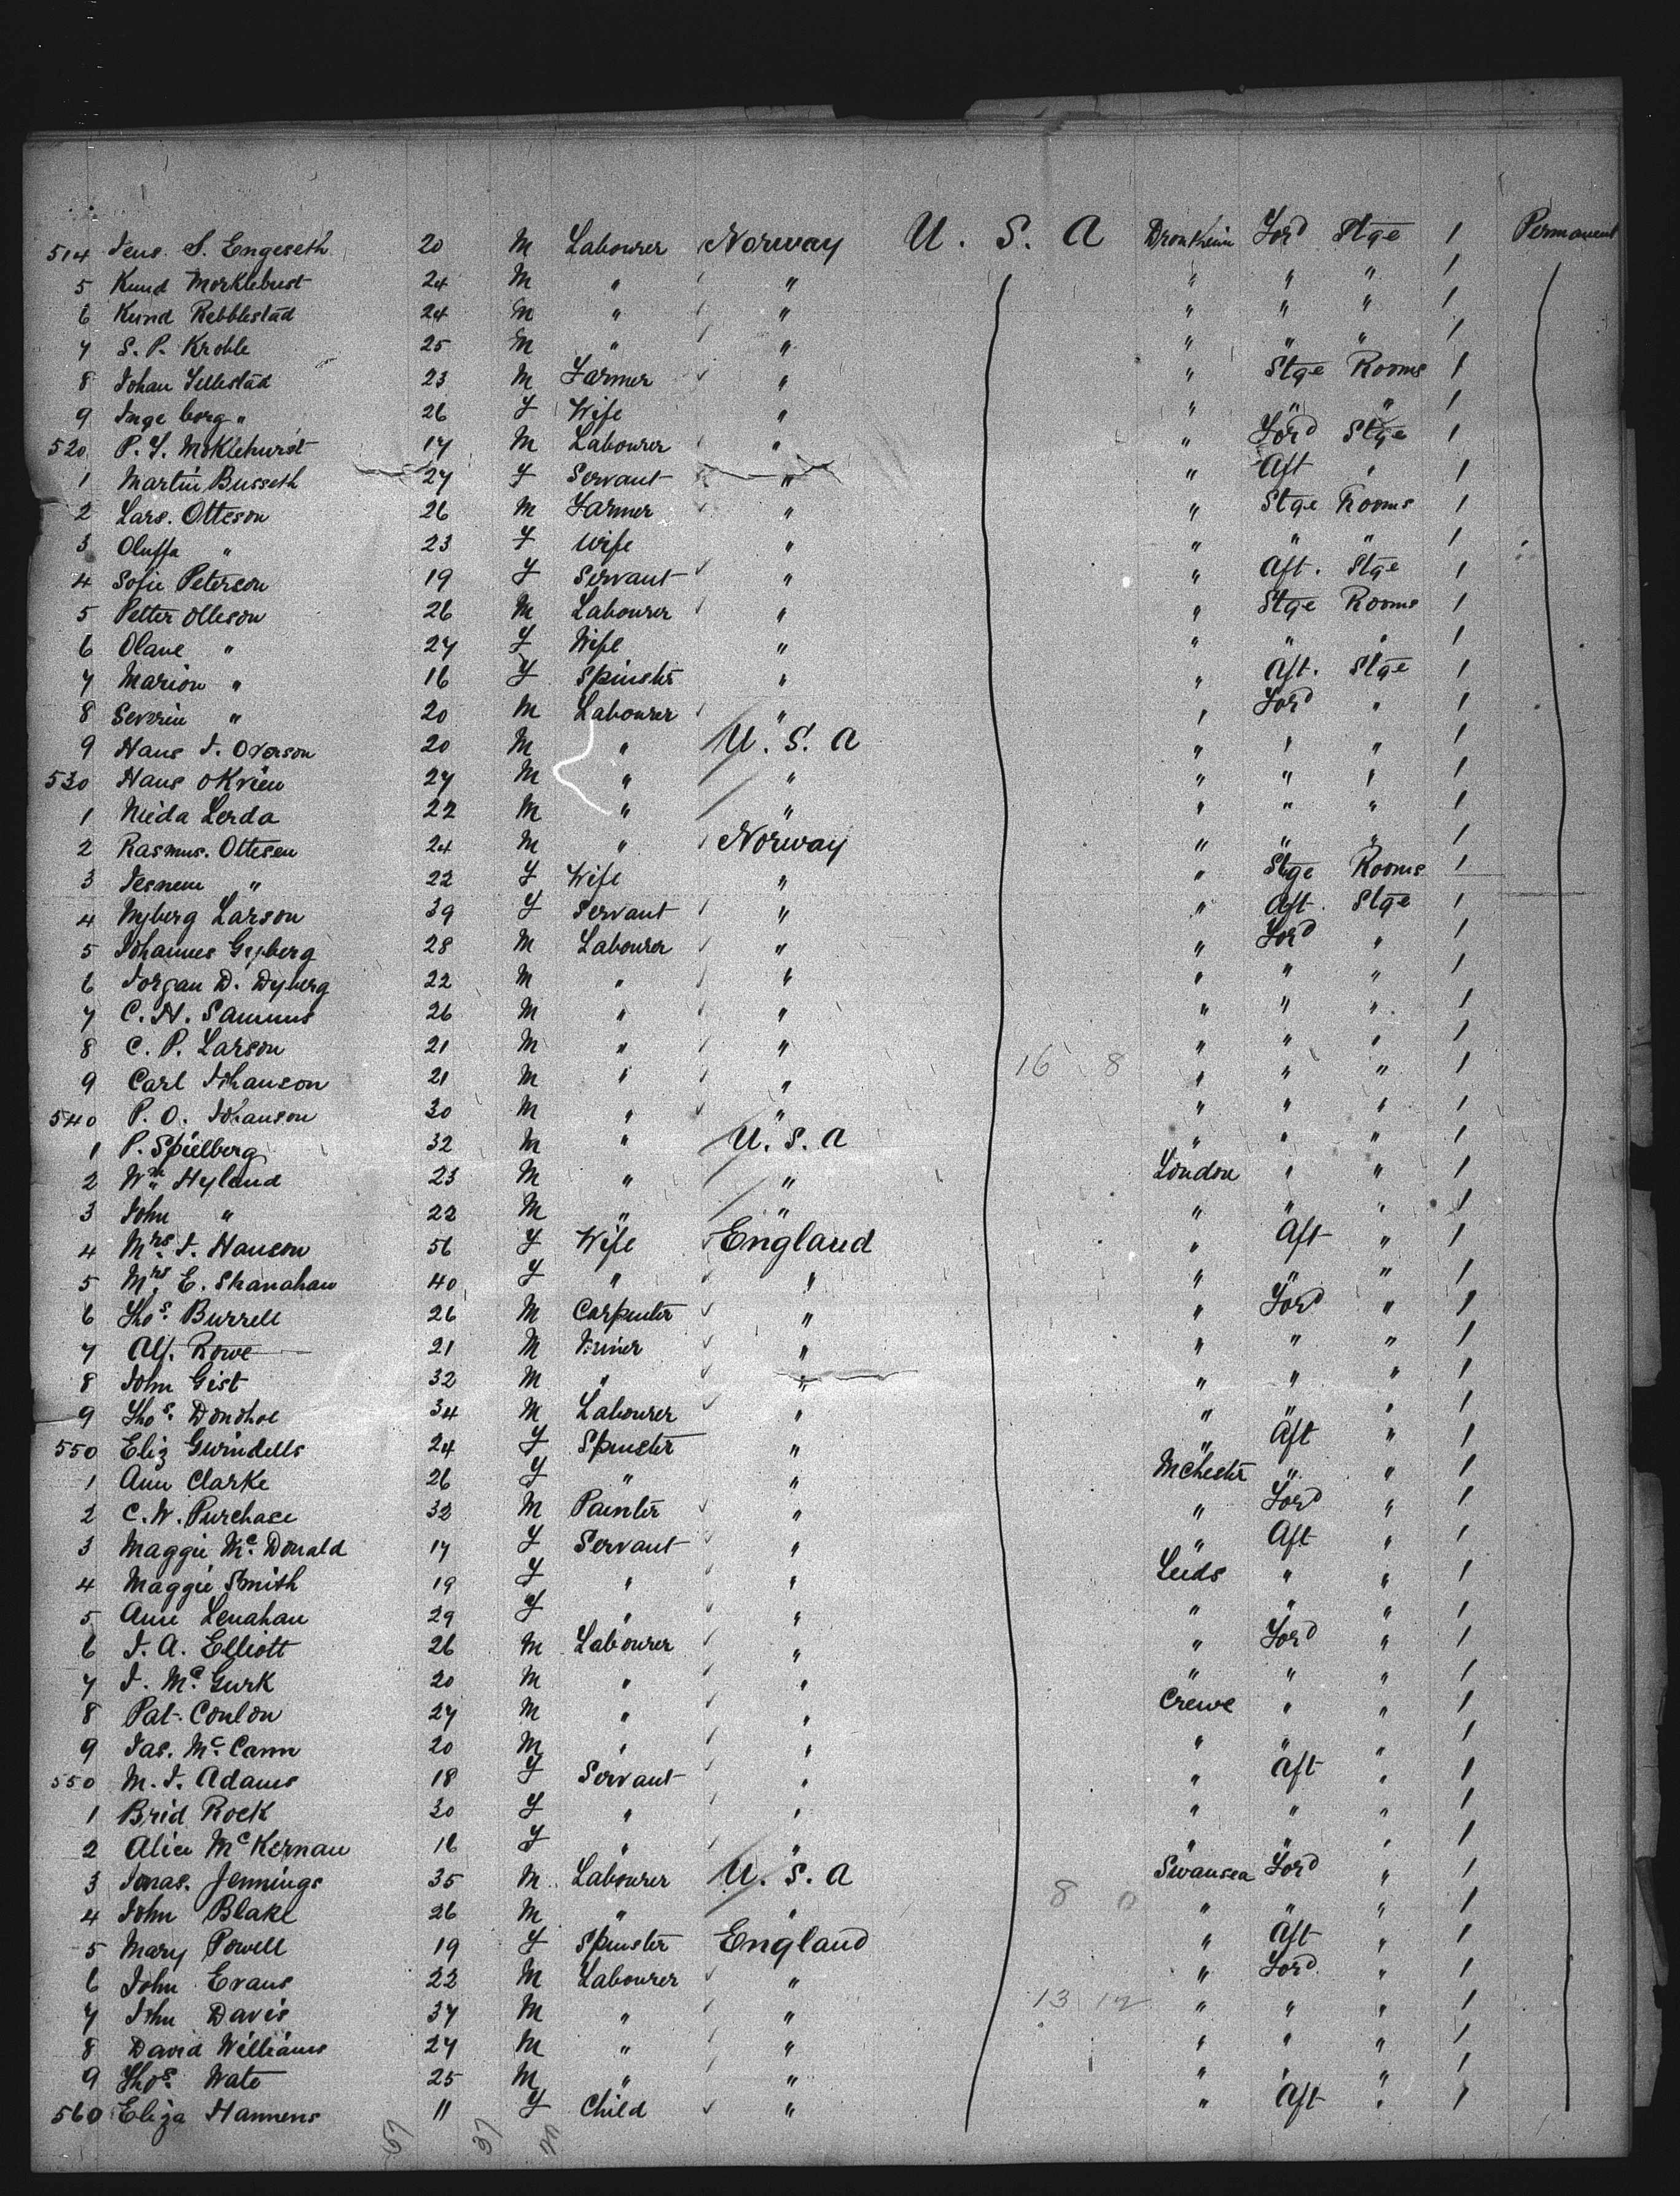 514 Jens S. Engeseth 20 M Labourer Norway U. S. A Dronkheim Ford Stge 1 Permanent
5 Knud Morklebust 24 M " " " " " 1
6 Kund Rebblestad 24 M " " " " " 1
7 S. P. Kroble 25 M " " " " " 1
8 Johan 23 M Farmer " " Stge Rooms 1
9 Inge borg " 26 F Wife " " " " 1
520 P. J. Moklehurst 17 M Labourer " " Ford Stge 1
1 Martin Busseth 27 F Servant " " Aft " 1
2 Lars. Otteson 26 M Farmer " " Stge Rooms 1
3 Oluffa " 23 F Wife " " " " 1
4 Sofie Peterson 19 F Servant " " Aft. Stge 1
5 Petter Olleson 26 M Labourer " " Stge Rooms 1
6 Olave " 27 F Wife " " " " 1
7 Marion " 16 F Spinster " " Aft. Stge 1
8 Severin " 20 M Labourer " " Ford " 1
9 Hans J. Overson 20 M " U. S. A " " " 1
530 Hans Okrien 27 M " " " " " 1
1 Nieda Lerda 22 M " " " " " 1
2 Rasmus. Ottesen 24 M " Norway " " " 1
3 " 22 F Wife " " Stge Rooms 1
4 Nyberg Larson 39 F Servant " " Aft. Stge 1
5 Johannes Gryberg 28 M Labourer " " Ford " 1
6 Jorgan D. Dyberg 22 M " " " " " 1
7 C. H. Samuns 26 M " " " " " 1
8 C. P. Larson 21 M " " 16 8 " " " 1
9 Carl Johanson 21 M " " " " " 1
540 P. O. Johanson 30 M " " " " " 1
1 P. Spielberg 32 M " U. S. A " " " 1
2 Wm Hyland 23 M " " London " " 1
3 John " 22 M " " " " " 1
4 Mrs. J. Hanson 56 F Wife England " Aft " 1
5 Mrs. E. Shanahan 40 F " " " " " 1
6 Thos. Burrell 26 M Carpenter " " Ford " 1
7 Alf. Rowe 21 M Miner " " " " 1
8 John Gist 32 M " " " " " 1
9 Thos. Donohoe 34 M Labourer " " " " 1
550 Eliz Gwindells 24 F Spinster " " Aft " 1
1 Ann Clarke 26 F " " Mchester " " 1
2 C. W. Purchase 32 M Painter " " Ford " 1
3 Maggie Mc. Donald 17 F Servant " " Aft " 1
4 Maggie Smith 19 F " " Leeds " " 1
5 Ann Lenahan 29 F " " " " " 1
6 J. A. Elliott 26 M Labourer " " Ford " 1
7 J. Mc. Gurk 20 M " " " " " 1
8 Pat. Conlon 27 M " " Crewe " " 1
9 Jas. Mc. Cann 20 M " " " " " 1
550 M. J. Adams 18 F Servant " " Aft " 1
1 Brid Rock 30 F " " " " " 1
2 Alice McKernan 16 F " " " " " 1
3 Jonas. Jennings 35 M Labourer U. S. A Swansea Ford " 1
4 John Blake 26 M " " 8 0 " " " 1
5 Mary Powell 19 F Spinster England " Aft " 1
6 John Evans 22 M Labourer " " Ford " 1
7 John Davis 37 M " " 13 17 " " " 1
8 David Williams 27 M " " " " " 1
9 Thos. Wate 25 M " " " " " 1
560 Eliza Hannens 11 F Child " " Aft " 1